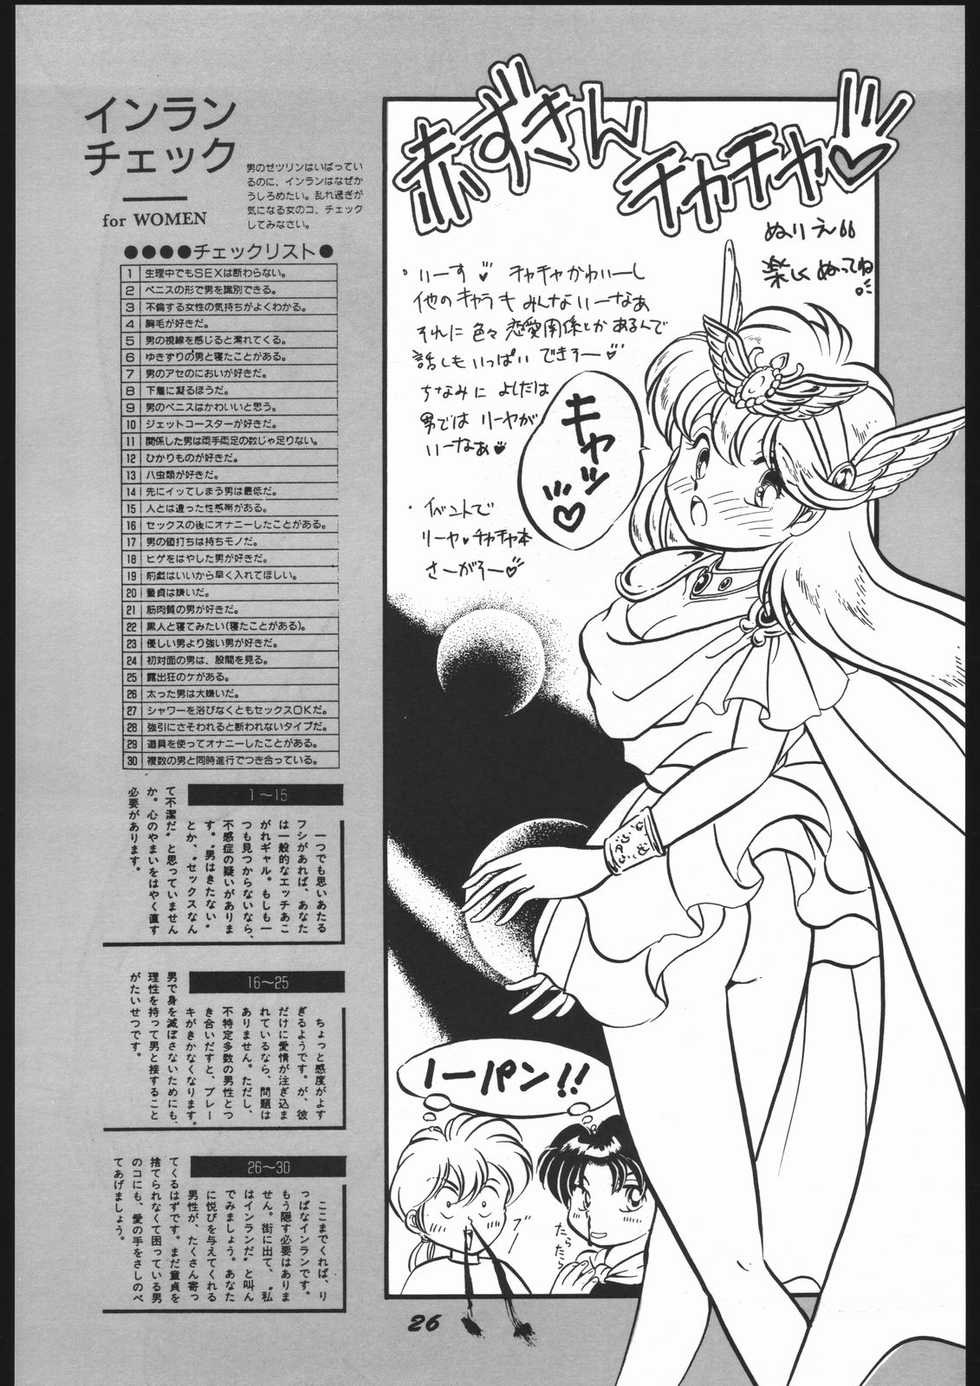 インラン
チェック
for WOMEN
男のゼツリンはいばってい
るのに、インランはなぜか
うしろめたい。乱れ過ぎが
気になる女のコ、チェック
してみなさい。
●●●●チェックリスト●
1 生理中でもSEXは断わらない。
2 ペニスの形で男を識別できる。
3 不倫する女性の気持ちがよくわかる。
4 胸毛が好きだ。
5 男の視線を感じると濡れてくる。
6 ゆきずりの男と寝たことがある。
7 男のアセのにおいが好きだ。
8 下着に凝るほうだ。
9 男のペニスはかわいいと思う。
10 ジェットコースターが好きだ。
11 関係した男は両手両足の数じゃ足りない。
12 ひかりものが好きだ。
13 ハ虫類が好きだ。
14 先にイッてしまう男は最低だ。
15 人とは違った性感帯がある。
16 セックスの後にオナニーしたことがある。
17 男の値打ちは持ちモノだ。
18 ヒゲをはやした男が好きだ。
19 前戯はいいから早く入れてほしい。
20 童貞は嫌いだ。
21 筋肉質の男が好きだ。
22 黒人と寝てみたい(寝たことがある)。
23 優しい男より強い男が好きだ。
24 初対面の男は、股間を見る。
25 露出狂のケがある。
26 太った男は大嫌いだ。
27 シャワーを浴びなくともセックスOKだ。
28 強引にさそわれると断われないタイプだ。
29 道具を使ってオナニーしたことがある。
30 複数の男と同時進行でつき合っている。
1〜15
一つでも思いあたる
フシがあれば、あなた
は一般的なエッチあこ
がれギャル。もしも一
つも見つからないなら、
不感症の疑いがありま
す。〝男はきたない〟
とか、〝セックスなん
て不潔だ〟と思っていません
か。心のやまいをはやく直す
必要があります。
16〜25
ちょっと感度がよす
ぎるようです。が、彼
だけに愛情が注ぎ込ま
れているなら、問題は
ありません。ただし、
不特定多数の男性とつ
き合いだすと、ブレー
キがきかなくなります。
男で身を滅ぼさないためにも、
理性を持って男と接すること
がたいせつです。
26〜30
ここまでくれば、り
っぱなインランです。
もう隠す必要はありま
せん。街に出て、〝私
はインランだ〟と叫ん
でみましょう。あなた
に悦びを与えてくれる
男性が、たくさん寄っ
てくるはずです。まだ童貞を
捨てられなくて困っている男
のコにも、愛の手をさしのべ
てあげましょう。
赤ずきん
チャチャ♡
ぬりえ
楽しくぬってね
・いーす♡ チャチャかわいーし
他のキャラもみんないーなあ
それに色々恋愛関係とかあるんで
話しもいっぱいできそー♡
ちなみによしだは
男ではリーヤが
いーなぁ♡
・イベントで
リーヤ♥チャチャ本
さーがそー♡
キャッ♡
ノーパン!!
ブー
たら
たら
26